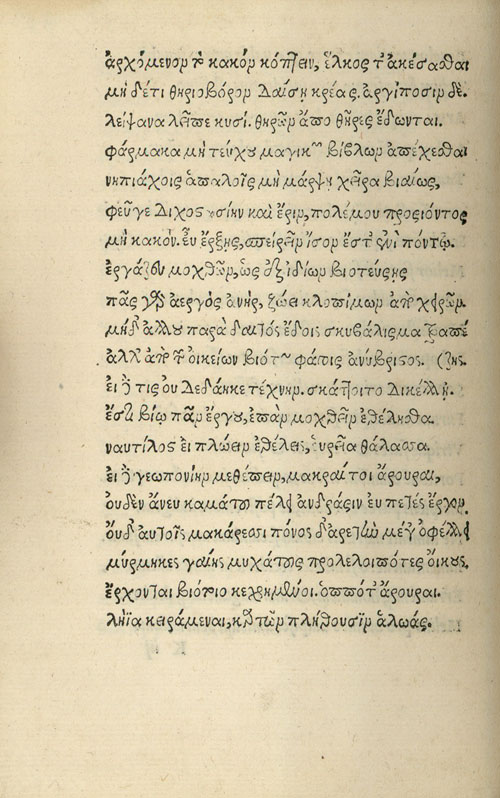 ἀρχόμενον τὸ κακὸν κόπτειν, ἕλκος τ' ἀκέσασθαι
μὴ δέ τι θηριοβόρον δαίσῃ κρέας. ἀργίποσιν δὲ.
λείψανα λεῖπε κυσί. θηρῶν ἄπο θῆρες ἔδονται.
φάρμακα μὴ τεύχου μαγικῶν βίβλων ἀπέχεσθαι
νηπιάχοις ἁπαλοῖς μὴ μάρψῃ χεῖρα βιαίως,
φεῦγε διχοστασίην καὶ ἔριν, πολέμου προσιόντος
μὴ κακὸν. εὖ ἔρξῃς, σπείρειν ἴσον ἔστ' ἐνὶ πόντῳ.
ἐργάζου μοχθῶν, ὡς ἐξ ἰδίων βιοτεύσῃς
πᾶς γὰρ ἀεργὸς ἀνὴρ, ζώει κλοπίμων ἀπὸ χειρῶν.
μὴδ' ἄλλου παρὰ δαιτὸς ἔδοις σκυβάλισμα τραπέ
ἀλλ' ἀπὸ τῶν οἰκείων βιότων φάγοις ἀνύβριστος. (ζης.
εἰ δέ τις οὐ δεδάηκε τέχνην. σκάπτοιτο δικέλλῃ.
ἔστι βίῳ πᾶν ἔργον, ἐπὰν μοχθεῖν ἐθέλῃσθα.
ναυτίλος εἰ πλώειν ἐθέλεις, εὐρεῖα θάλασσα.
εἰ δὲ γεωπονίην μεθέπειν, μακραί τοι ἄρουραι,
οὐδὲν ἄνευ καμάτου πέλει ἀνδράσιν εὐπετὲς ἔργον
οὐδ' αὐτοῖς μακάρεσσι πόνος δ' ἀρετὴν μέγ' ὀφέλλει
μύρμηκες γαίης μυχάτους προλελοιπότες οἴκους.
ἔρχονται βιότοιο κεχρημένοι. ὁππότ' ἄρουραι.
λήϊα κειράμεναι, καρπῶν πλήθουσιν ἁλωάς.